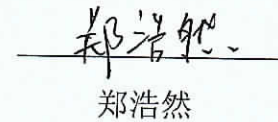 郑浩然
郑浩然